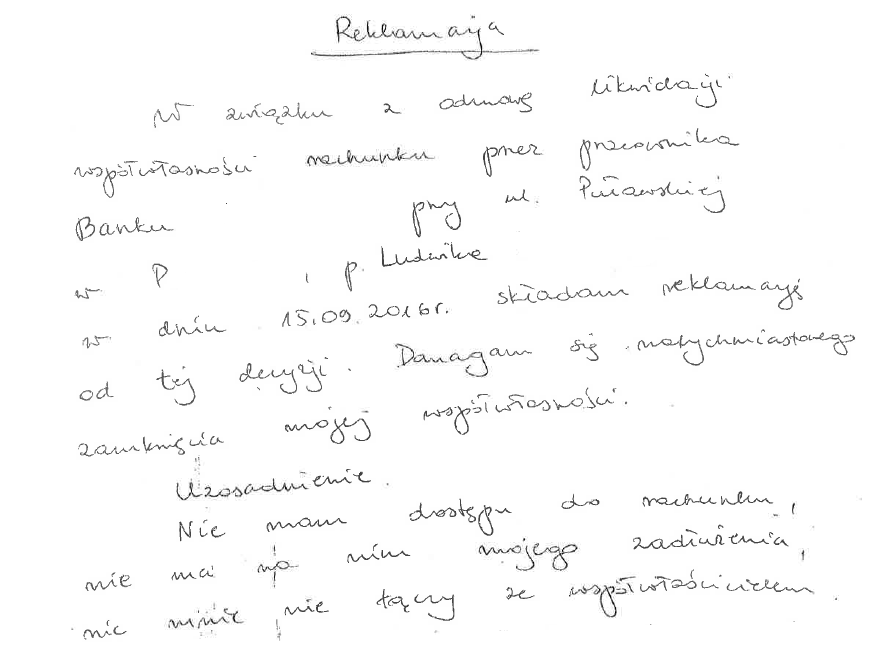 Reklamacja
W związku z odmową likwidacji
współwłasności rachunku przez pracownika
Banku przy ul. Puławskiej
w P , p. Ludwika
w dniu 15.09.2016r. składam reklamację
od tej decyzji. Domagam się natychmiastowego
zamknięcia mojej współwłasności.
Uzasadnienie.
Nie mam dostępu do rachunku,
nie ma na nim mojego zadłużenia,
nic mnie nie łączy ze współwłaścicielem.